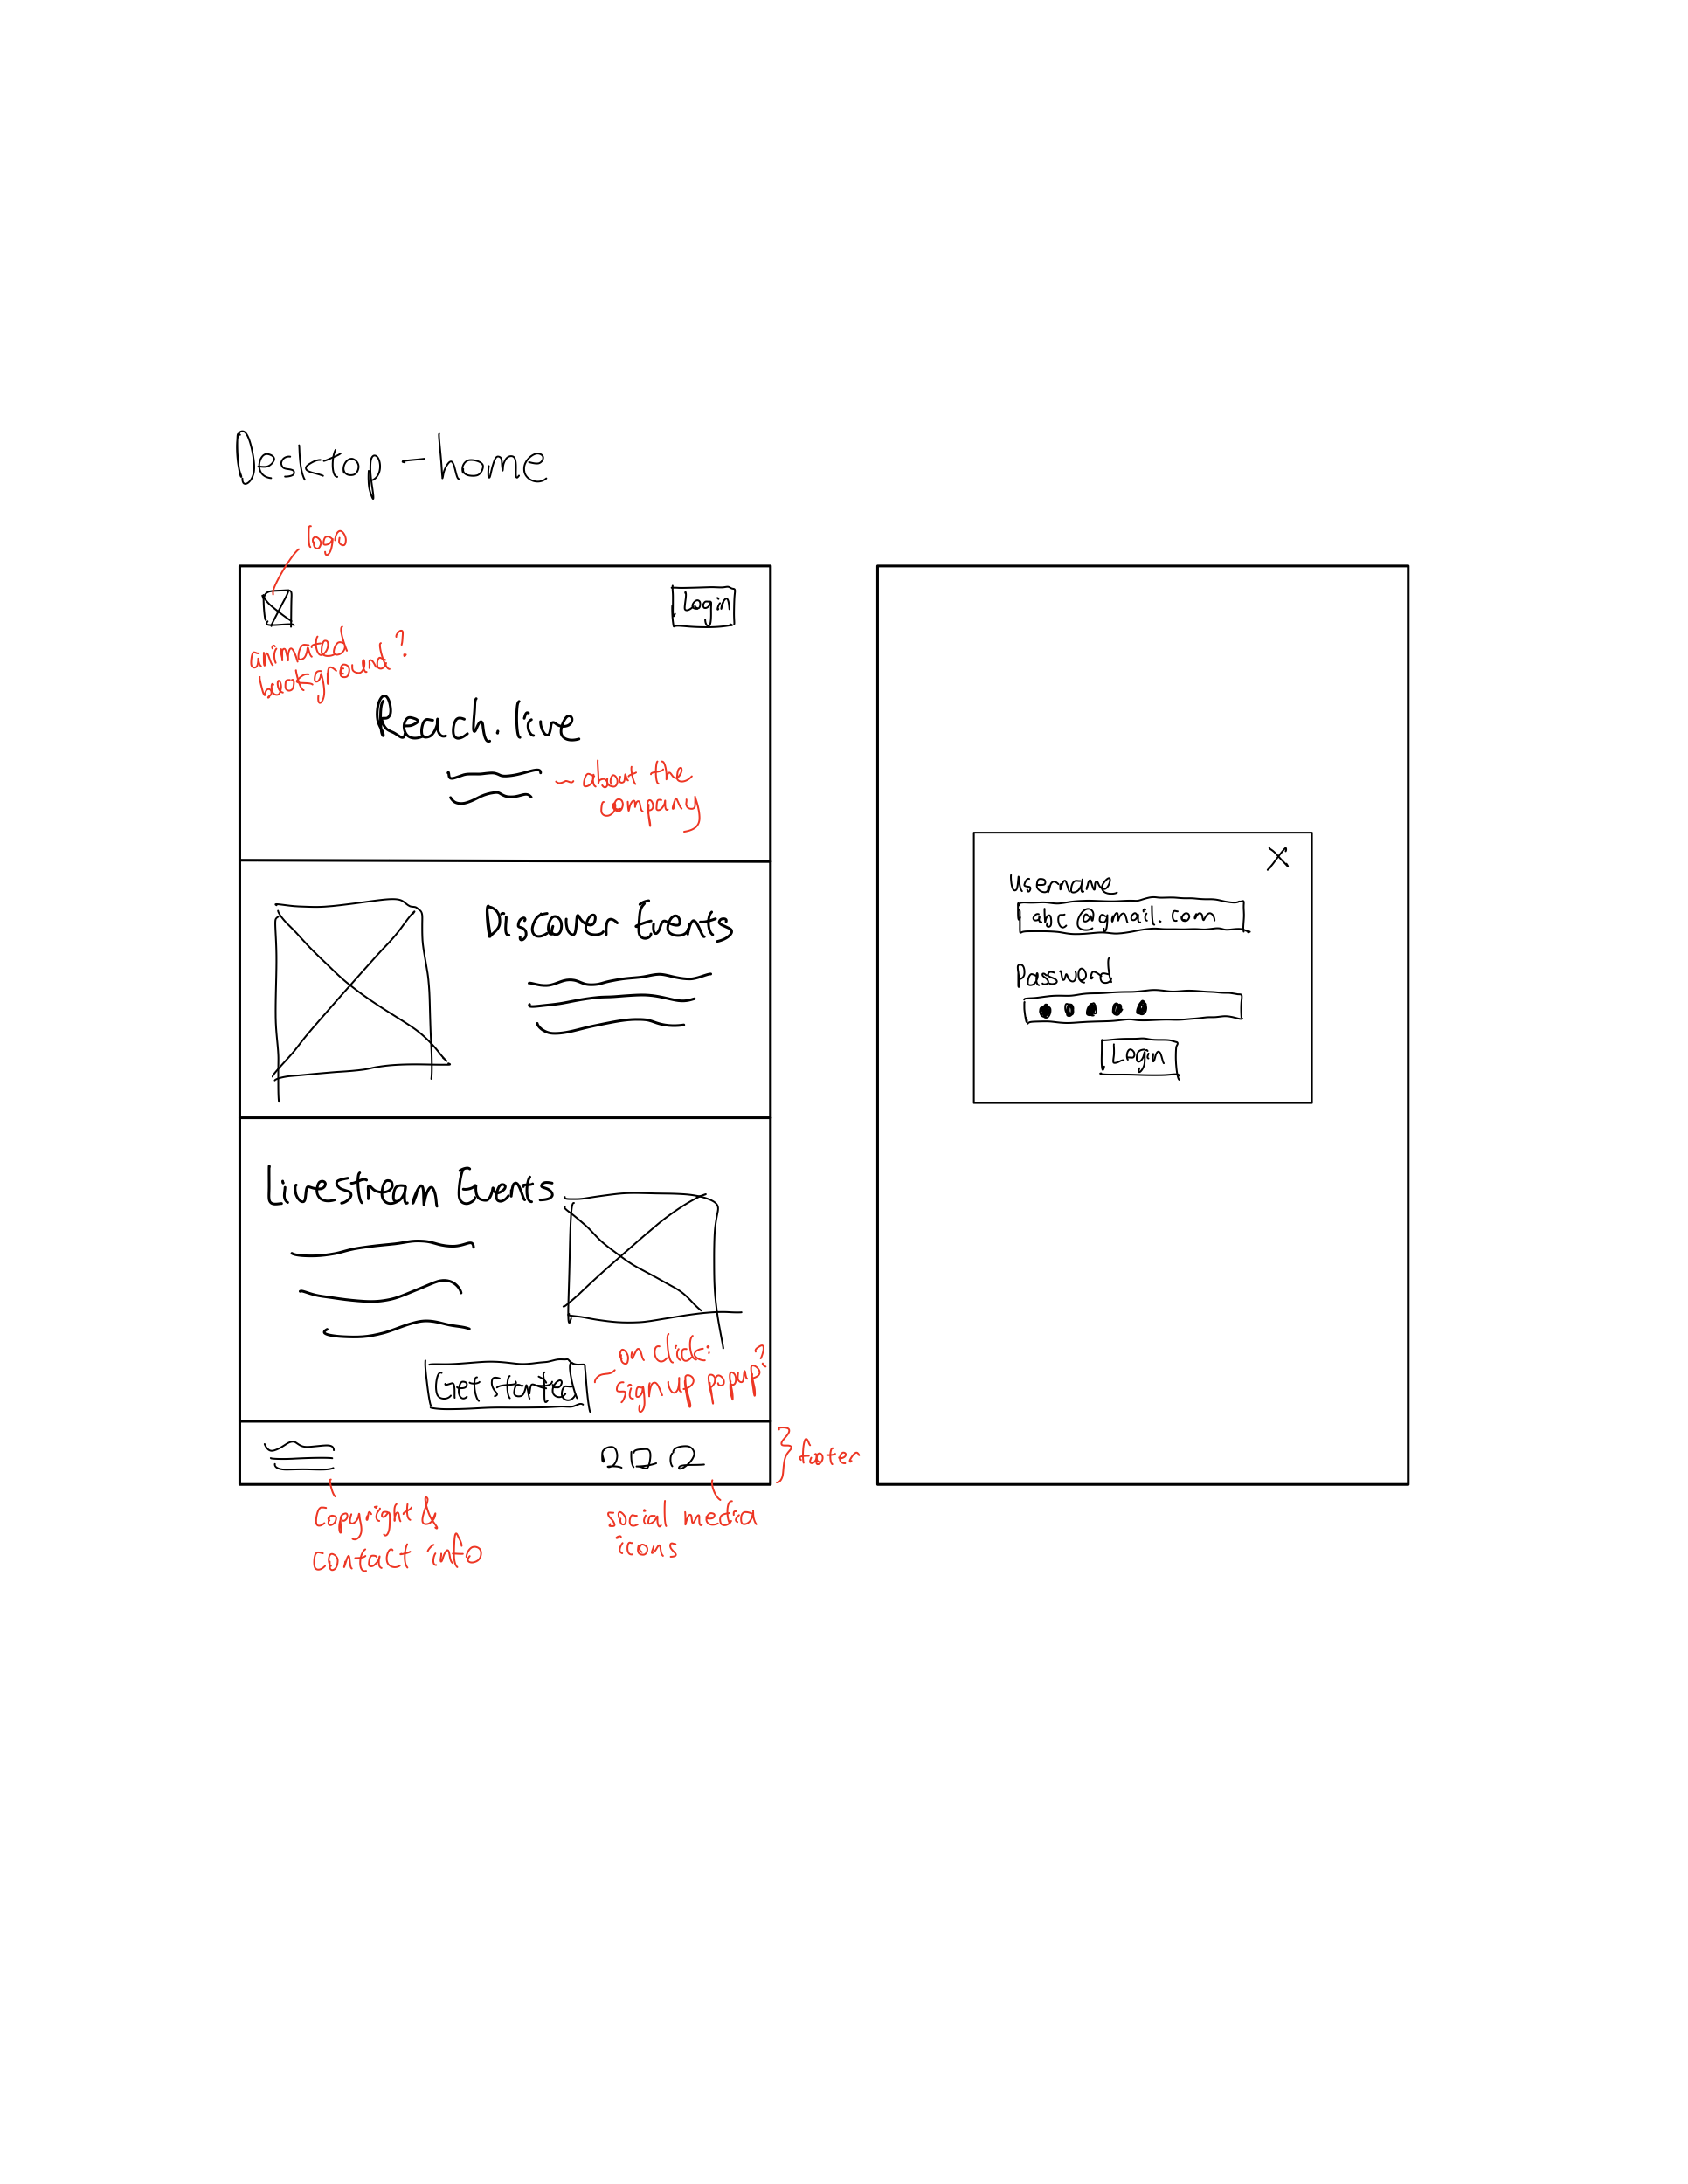 Desktop - home
logo
Login
animated
background?
Reach.live
~ about the
company
Discover Events
Livestream Events
on click:
sign up popup?
Get started
} footer
Copyright &
contact info
social media
icons
X
Username
abc@gmail.com
Password
Login